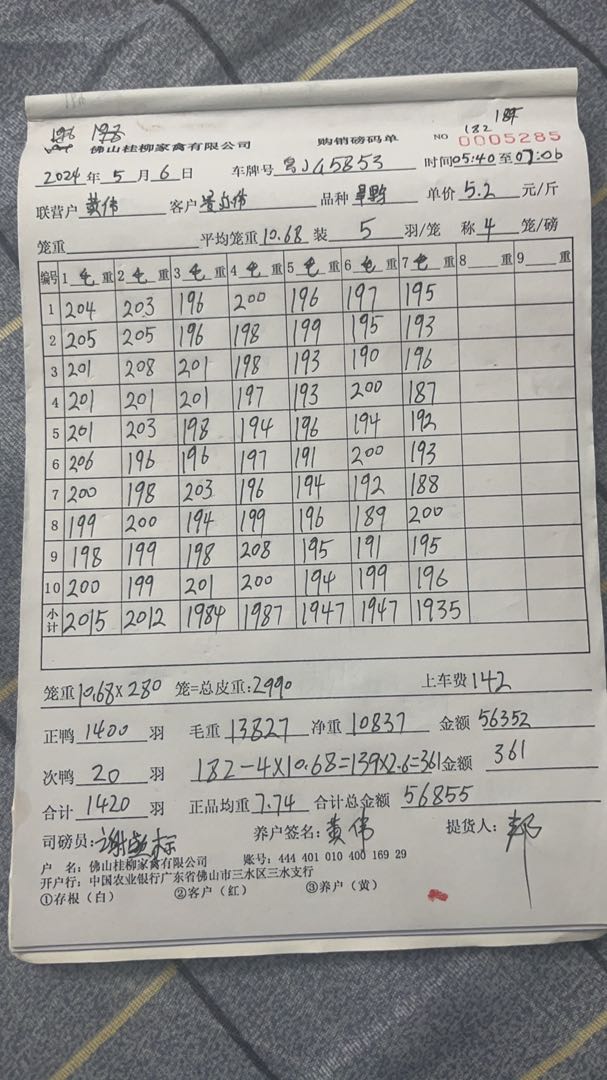 196 198 182 184
佛山桂柳家禽有限公司 购销磅码单 NO 0005285
2024年5月6日 车牌号 粤JG5853 时间05:40至07:06
联营户 黄伟 客户 品种 单价 5.2 元/斤
笼重 平均笼重10.68 装 5 羽/笼 称 4 笼/磅
编号 1 毛 重 2 毛 重 3 毛 重 4 毛 重 5 毛 重 6 毛 重 7 毛 重 8 重 9 重
1 204 203 196 200 196 197 195
2 205 205 196 198 199 195 193
3 201 208 201 198 193 190 196
4 201 201 201 197 193 200 187
5 201 203 198 194 196 194 192
6 206 196 196 197 191 200 193
7 200 198 203 196 194 192 188
8 199 200 194 199 196 189 200
9 198 199 198 208 195 191 195
10 200 199 201 200 194 199 196
小计 2015 2012 1984 1987 1947 1947 1935
笼重10.68×280 笼=总皮重:2990 上车费142
正鸭 1400 羽 毛重 13827 净重 10837 金额 56352
次鸭 20 羽 182-4×10.68=139×2.6=361金额 361
合计 1420 羽 正品均重 7.74 合计总金额 56855
司磅员: 养户签名: 黄伟 提货人:
户 名: 佛山桂柳家禽有限公司 账号: 444 401 010 400 169 29
开户行: 中国农业银行广东省佛山市三水区三水支行
①存根(白) ②客户(红) ③养户(黄)